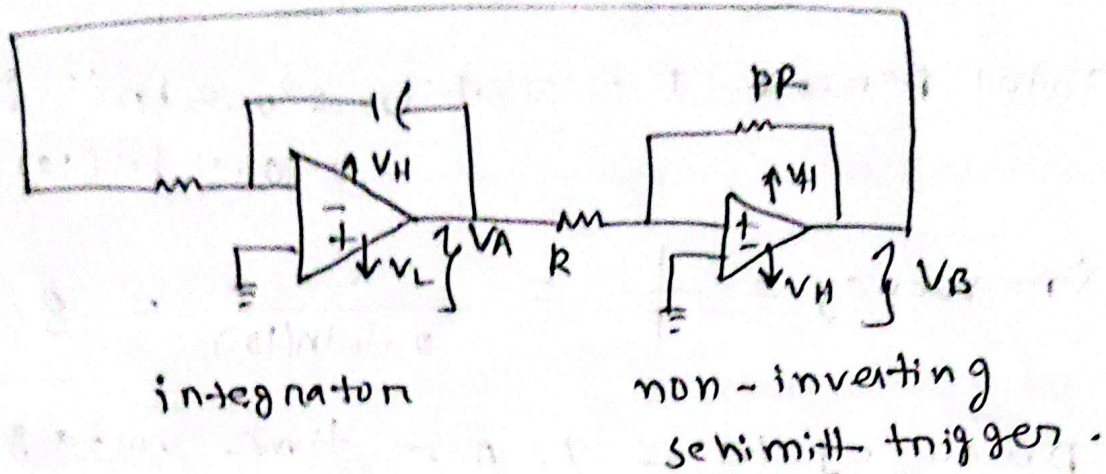 pR
VH
VH
VL
VA
R
VH
VB
integrator
non-inverting
schimitt trigger.